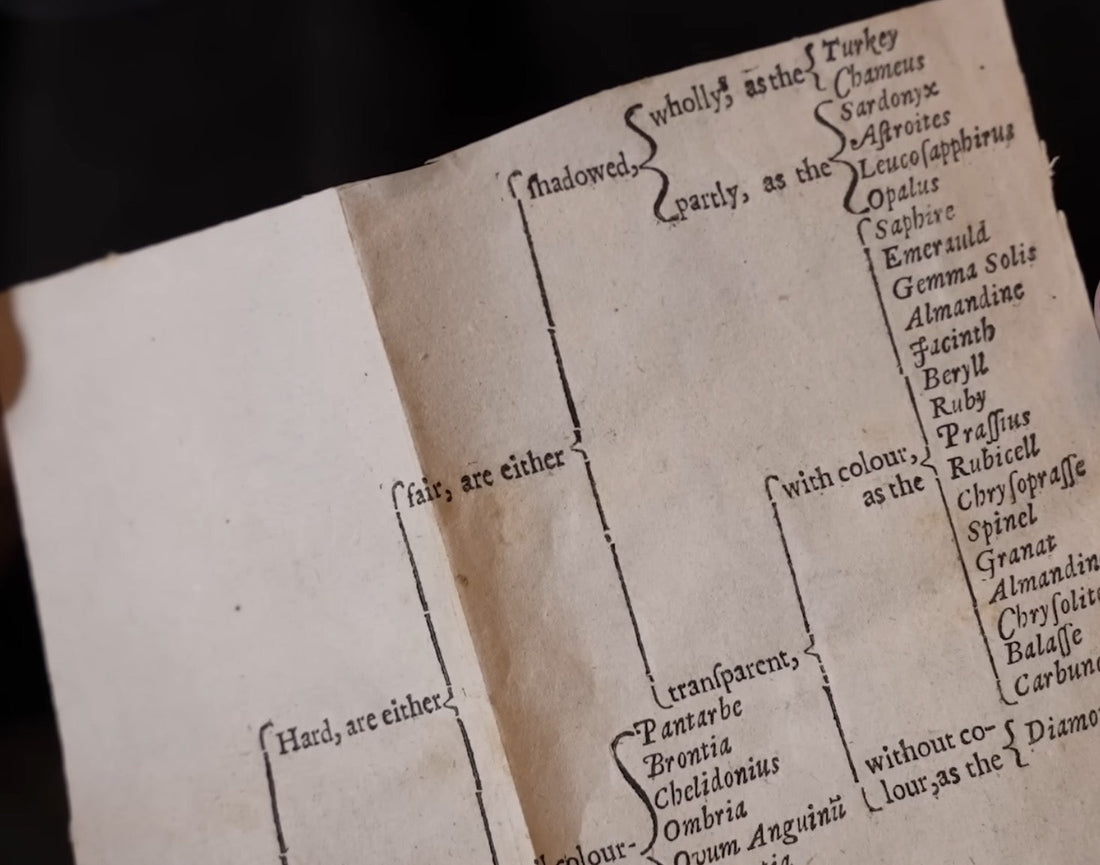 Turkey
wholly, as the
Chameus
Sardonyx
Aſtroites
ſhadowed,
Leucoſapphirus
partly, as the
Opalus
Saphire
Emerauld
Gemma Solis
Almandine
Jacinth
Beryll
Ruby
Praſſius
fair, are either
with colour,
Rubicell
as the
Chryſopraſſe
Spinel
Granat
Almandin
Chryſolit
Balaſſe
tranſparent,
Carbun
Pantarbe
Hard, are either
Brontia
without co-
Diamo
Chelidonius
lour, as the
Ombria
colour-
Ovum Anguinũ